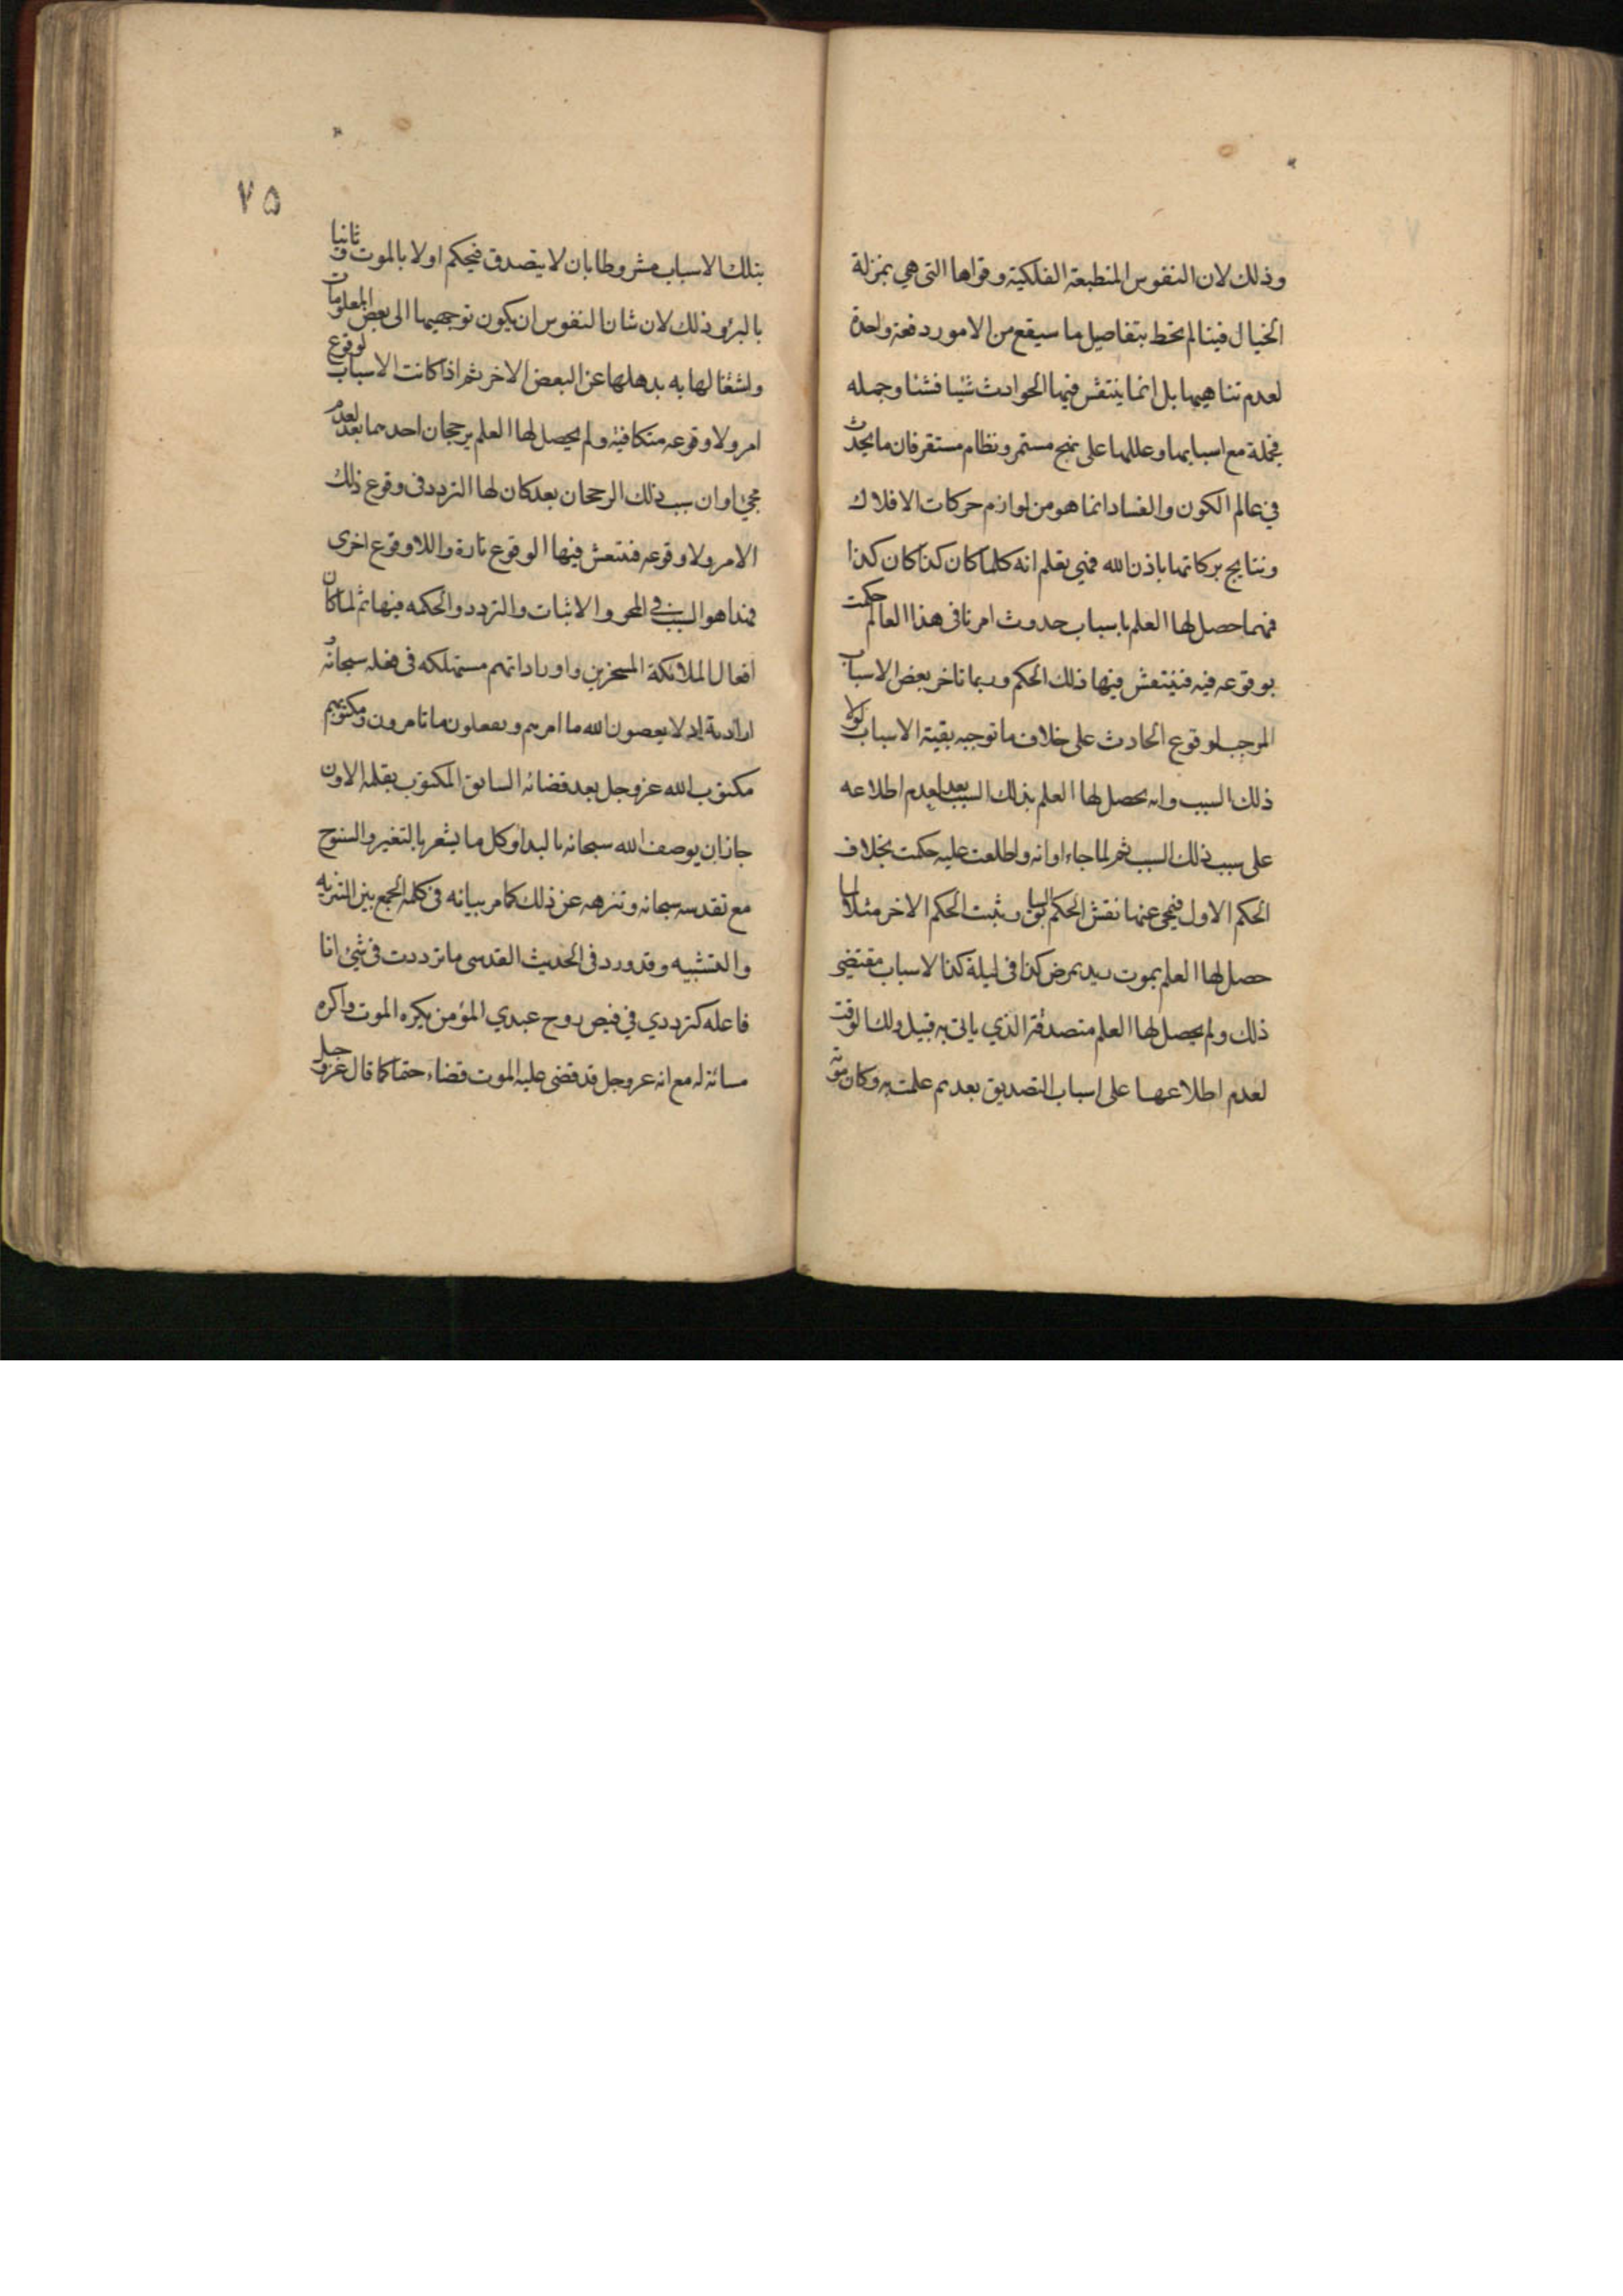 وذلك لان النفوس المنطبعة الفلكية وقواها التى هي بمنزلة
الخيال فينا لم تحط بتفاصيل ما سيقع من الامور دفعة واحدة
لعدم تناهيها بل انما ينتقش فيها الحوادث شيئا فشيئا وجمله
فجملة مع اسبابها وعللها على نهج مستمر ونظام مستقر فان ما يحدث
في عالم الكون والفساد انما هو من لوازم حركات الافلاك
ونتايج بركاتها باذن الله فهي يعلم انه كلما كان كذا كان كذا
فمهما حصل لها العلم باسباب حدوث امر ما فى هذا العالم حكمت
بوقوعه فيه فينتقش فيها ذلك الحكم وربما تاخر بعض الاسباب
الموجب لوقوع الحادث على خلاف ما توجبه بقية الاسباب لولا
ذلك السبب ولم يحصل لها العلم بذلك السبب بعد لعدم اطلاعه
على سبب ذلك السبب ثم لما جاء اوانه واطلعت عليه حكمت بخلاف
الحكم الاول فيمحى عنها نقش الحكم السابق ويثبت الحكم الاخر مثلا لما
حصل لها العلم بموت زيد بمرض كذا فى ليلة كذا لاسباب مقتضى
ذلك ولم يحصل لها العلم متصدقه الذي ياتى به قبيل ذلك الوقت
لعدم اطلاعها على اسباب التصديق بعد ثم علمت به وكان موته
٧٥
بتلك الاسباب مشروطا بان لا يتصدق فيحكم اولا بالموت وثانيا
بالبرؤ وذلك لان شان النفوس ان يكون توجهيها الى بعض المعلومات
واشتغالها به يذهلها عن البعض الاخر ثم اذا كانت الاسباب لوقوع
امر ولا وقوعه متكافية ولم يحصل لها العلم برجحان احدهما بعد لعدم
مجئ اوان سبب ذلك الرجحان بعد كان لها التردد فى وقوع ذلك
الامر ولا وقوعه فينتقش فيها الوقوع تارة واللاوقوع اخرى
فهذا هو السبب في المحو والاثبات والتردد والحكمه فيها ثم لما كان
افعال الملائكة المسخرين واوراداتهم مستهلكه فى فعله سبحانه و
ارادته اذ لا يعصون الله ما امرهم ويفعلون ما يامرون ومكتوبهم
مكتوب الله عز وجل بعد قضائه السابق المكتوب بقلمه الاول
جاز ان يوصف الله سبحانه بالبدا وكل ما يشعر بالتغير والسنوح
مع تقدسه سبحانه وتنزهه عن ذلك كما مر بيانه فى كلمه الجمع بين التنزيه
والتشبيه وقد ورد فى الحديث القدسى ما ترددت فى شئ انا
فاعله كترددي في قبض روح عبدي المؤمن يكره الموت واكره
مسائته له مع انه عز وجل قد قضى عليه الموت قضاء حقا كما قال عز وجل